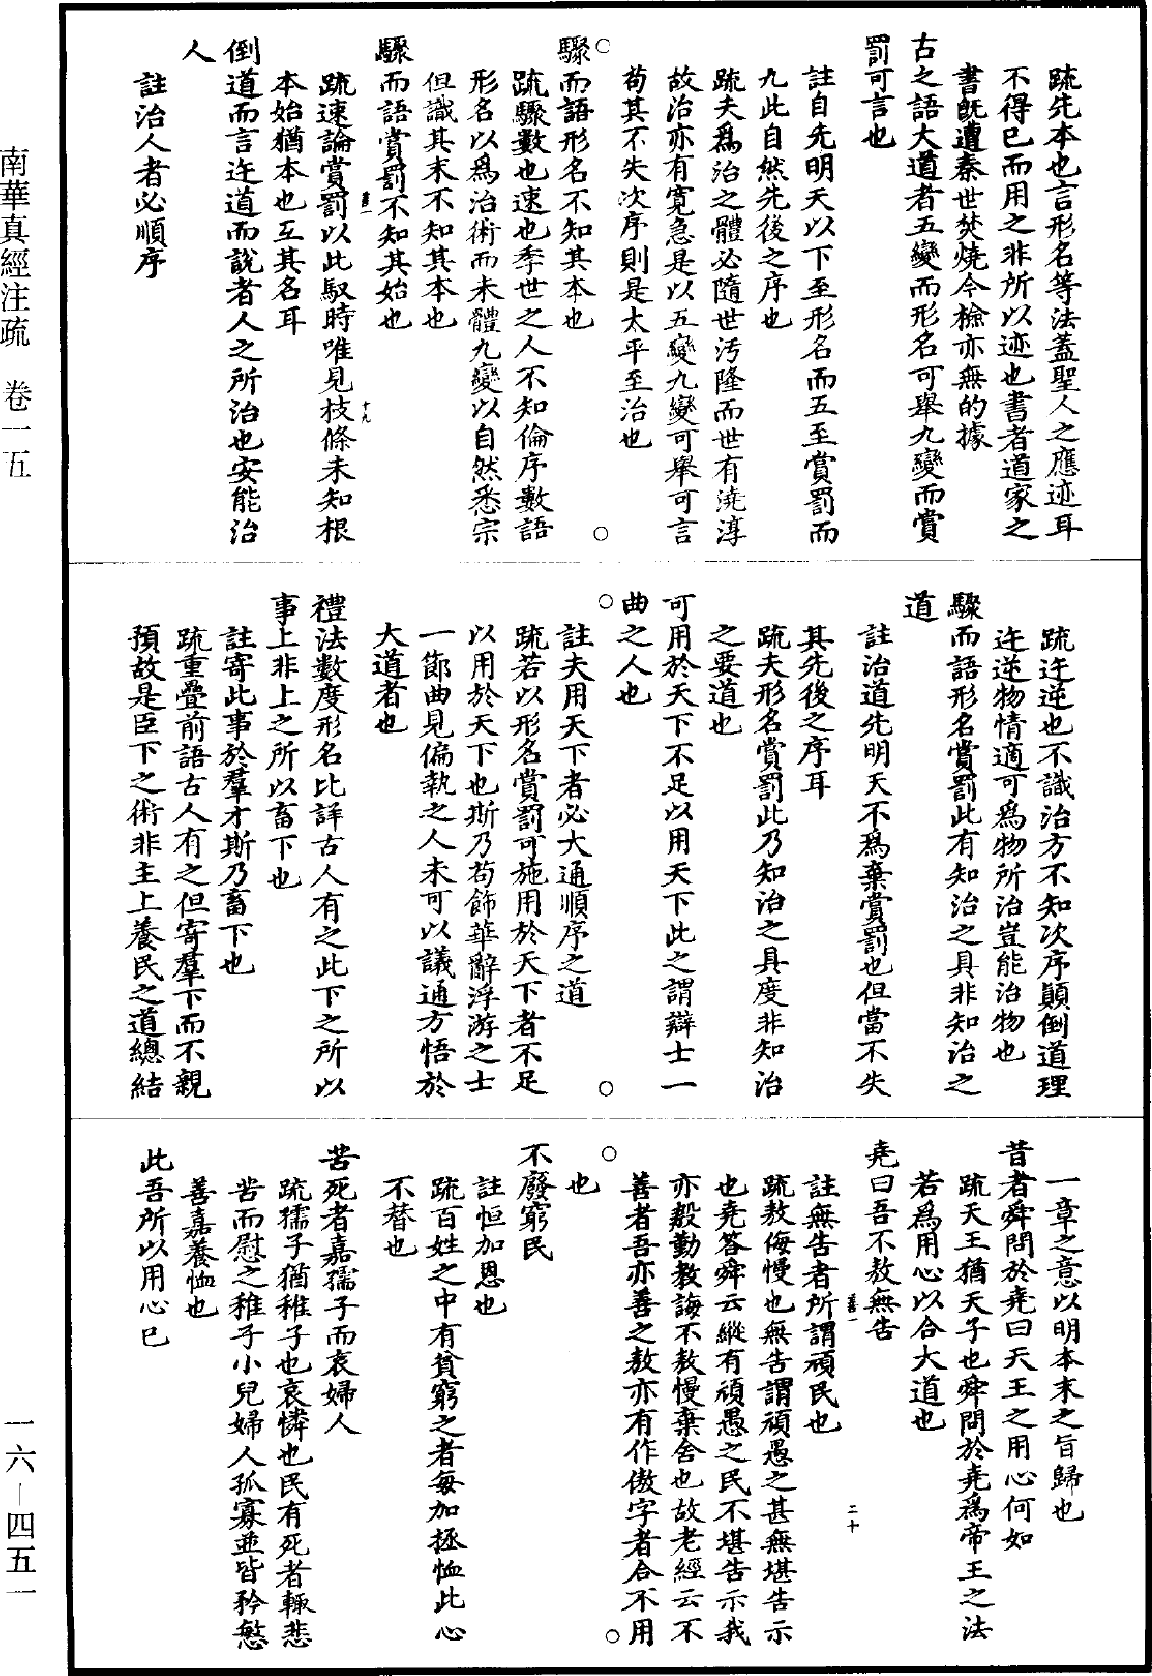 疏先本也言形名等法蓋聖人之應迹耳
不得已而用之非所以迹也書者道家之
書旣遭秦世焚燒今檢亦無的據
古之語大道者五變而形名可舉九變而賞
罰可言也
註自先明天以下至形名而五至賞罰而
九此自然先後之序也
疏夫爲治之體必隨世汚隆而世有澆淳
故治亦有寬急是以五變九變可舉可言
苟其不失次序則是太平至治也
驟而語形名不知其本也
疏驟數也速也季世之人不知倫序數語
形名以爲治術而未體九變以自然悉宗
但識其末不知其本也
驟而語賞罰不知其始也
疏速論賞罰以此馭時唯見枝條未知根
本始猶本也互其名耳
倒道而言迕道而說者人之所治也安能治
人
註治人者必順序
疏迕逆也不識治方不知次序顛倒道理
迕逆物情適可爲物所治豈能治物也
驟而語形名賞罰此有知治之具非知治之
道
註治道先明天不爲棄賞罰也但當不失
其先後之序耳
疏夫形名賞罰此乃知治之具度非知治
之要道也
可用於天下不足以用天下此之謂辯士一
曲之人也
註夫用天下者必大通順序之道
疏若以形名賞罰可施用於天下者不足
以用於天下也斯乃苟飾華辭浮游之士
一節曲見偏執之人未可以議通方悟於
大道者也
禮法數度形名比詳古人有之此下之所以
事上非上之所以畜下也
註寄此事於羣才斯乃畜下也
疏重疊前語古人有之但寄羣下而不親
預故是臣下之術非主上養民之道總結
一章之意以明本末之旨歸也
昔者舜問於堯曰天王之用心何如
疏天王猶天子也舜問於堯爲帝王之法
若爲用心以合大道也
堯曰吾不敖無告
註無告者所謂頑民也
疏敖侮慢也無告謂頑愚之甚無堪告示
也堯答舜云縱有頑愚之民不堪告示我
亦殷勤教誨不敖慢棄舍也故老經云不
善者吾亦善之敖亦有作傲字者合不用
也
不廢窮民
註恒加恩也
疏百姓之中有貧窮之者每加拯恤此心
不替也
苦死者嘉孺子而哀婦人
疏孺子猶稚子也哀憐也民有死者輒悲
苦而慰之稚子小兒婦人孤寡並皆矜愍
善嘉養恤也
此吾所以用心已
十九
二十
南華真經注疏 卷一五
一六—四五一